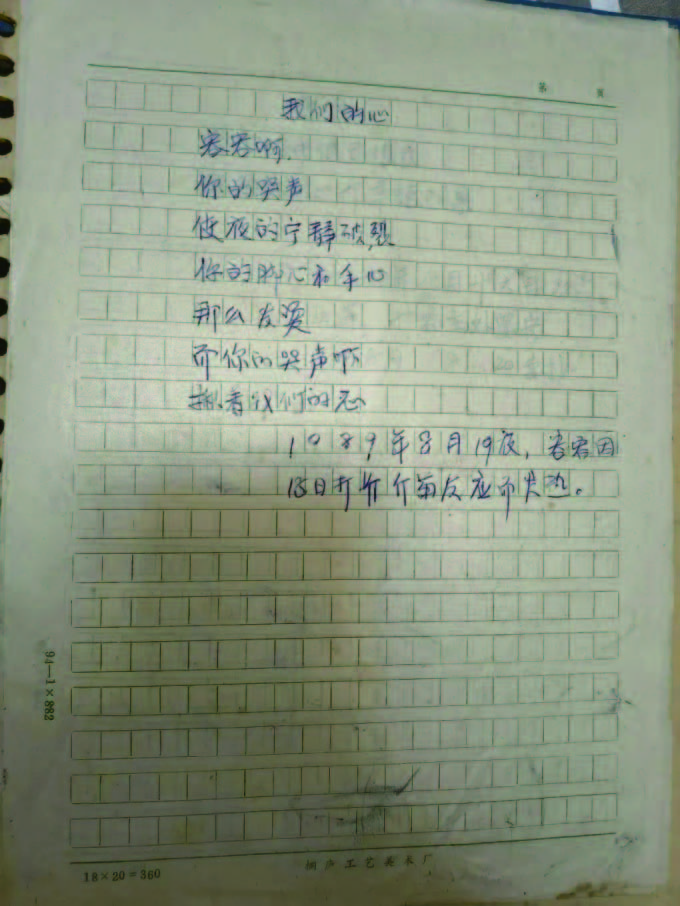 第 页
我们的心
容容啊,
你的哭声
使夜的宁静破裂
你的脚心和手心
那么发烫
而你的哭声啊
揪着我们的心
1989年8月19夜,容容因
18日打 反应而发热。
94—1×882
18×20=360
工艺美术厂